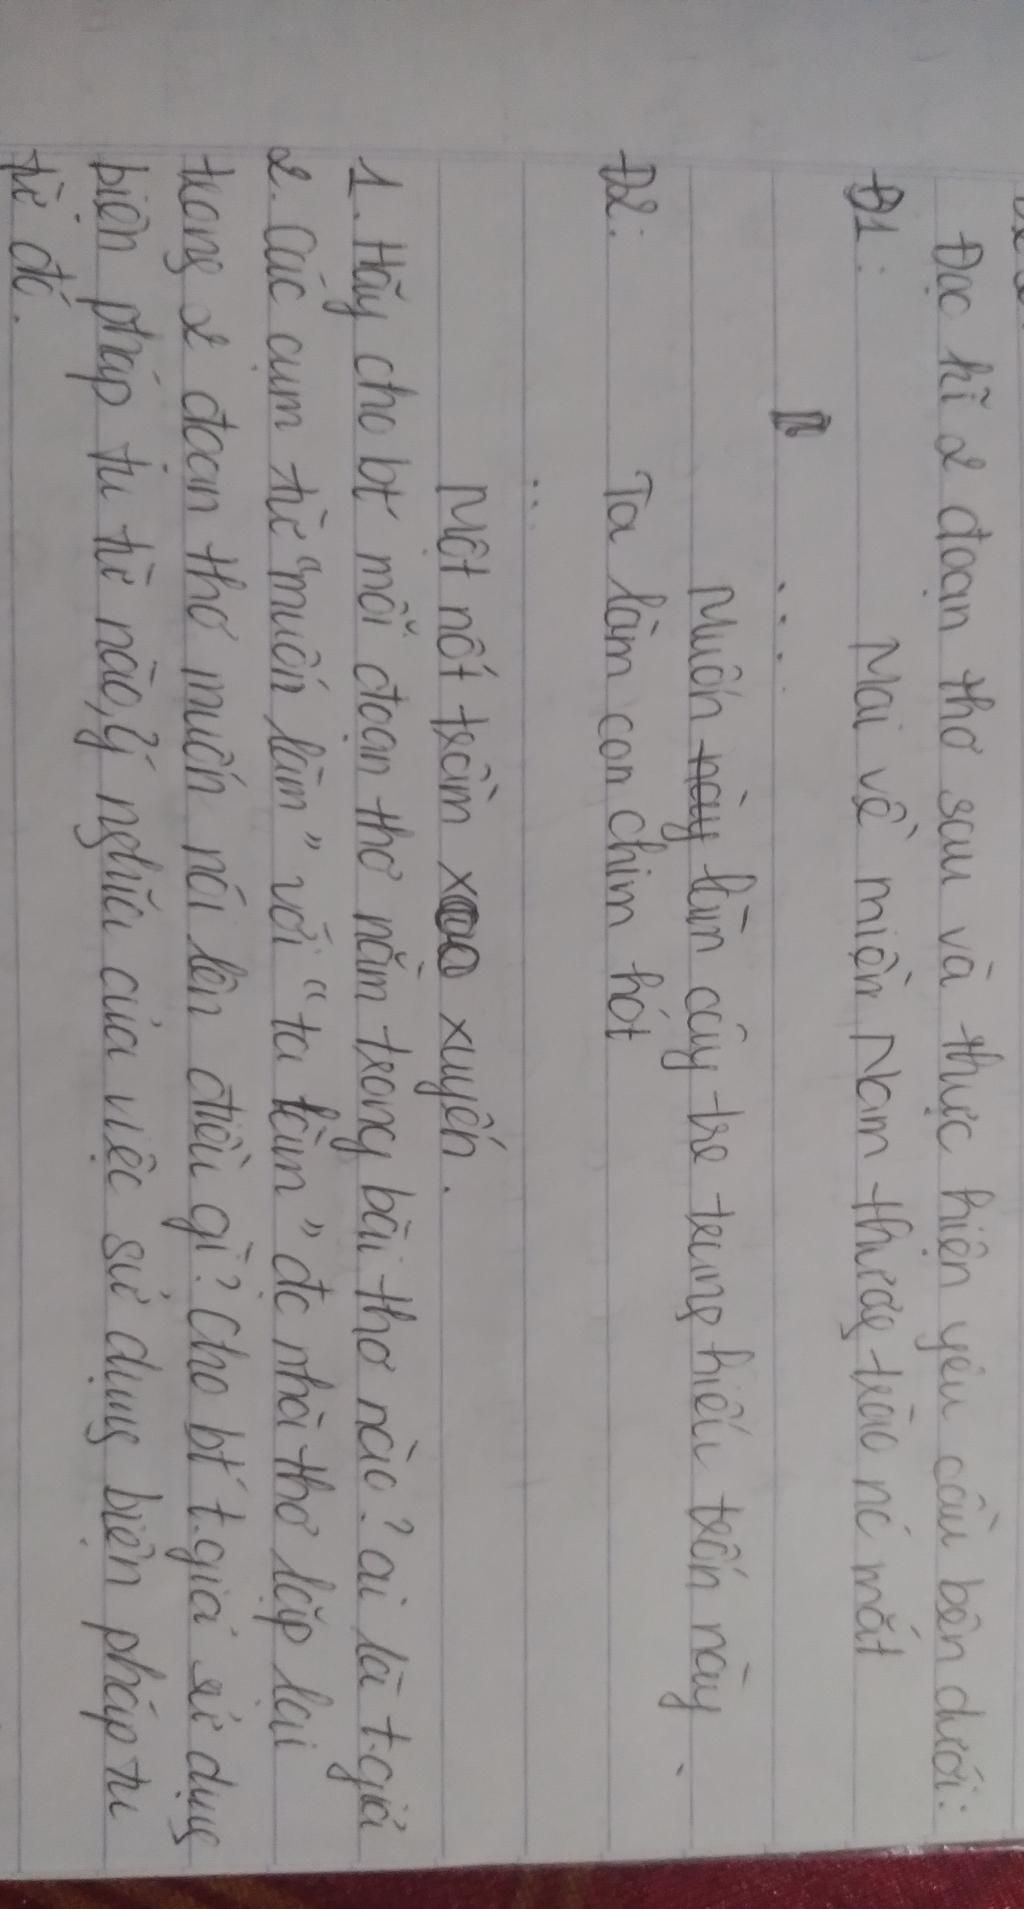 Đọc kĩ 2 đoạn thơ sau và thực hiện yêu cầu bên dưới:
Đ1: Mai về miền Nam thương trào nc mắt
....
Muốn làm cây tre trung hiếu trốn này.
Đ2: Ta làm con chim hót
...
Một nốt trầm xuyến.
1. Hãy cho bt mỗi đoạn thơ nằm trong bài thơ nào? ai là t.giả
2. Các cụm từ "muốn làm" với "ta làm" đc nhà thơ lặp lại
trong 2 đoạn thơ muốn nói lên điều gì? Cho bt t.giả sử dụng
biện pháp tu từ nào, ý nghĩa của việc sử dụng biện pháp tu
từ đó.